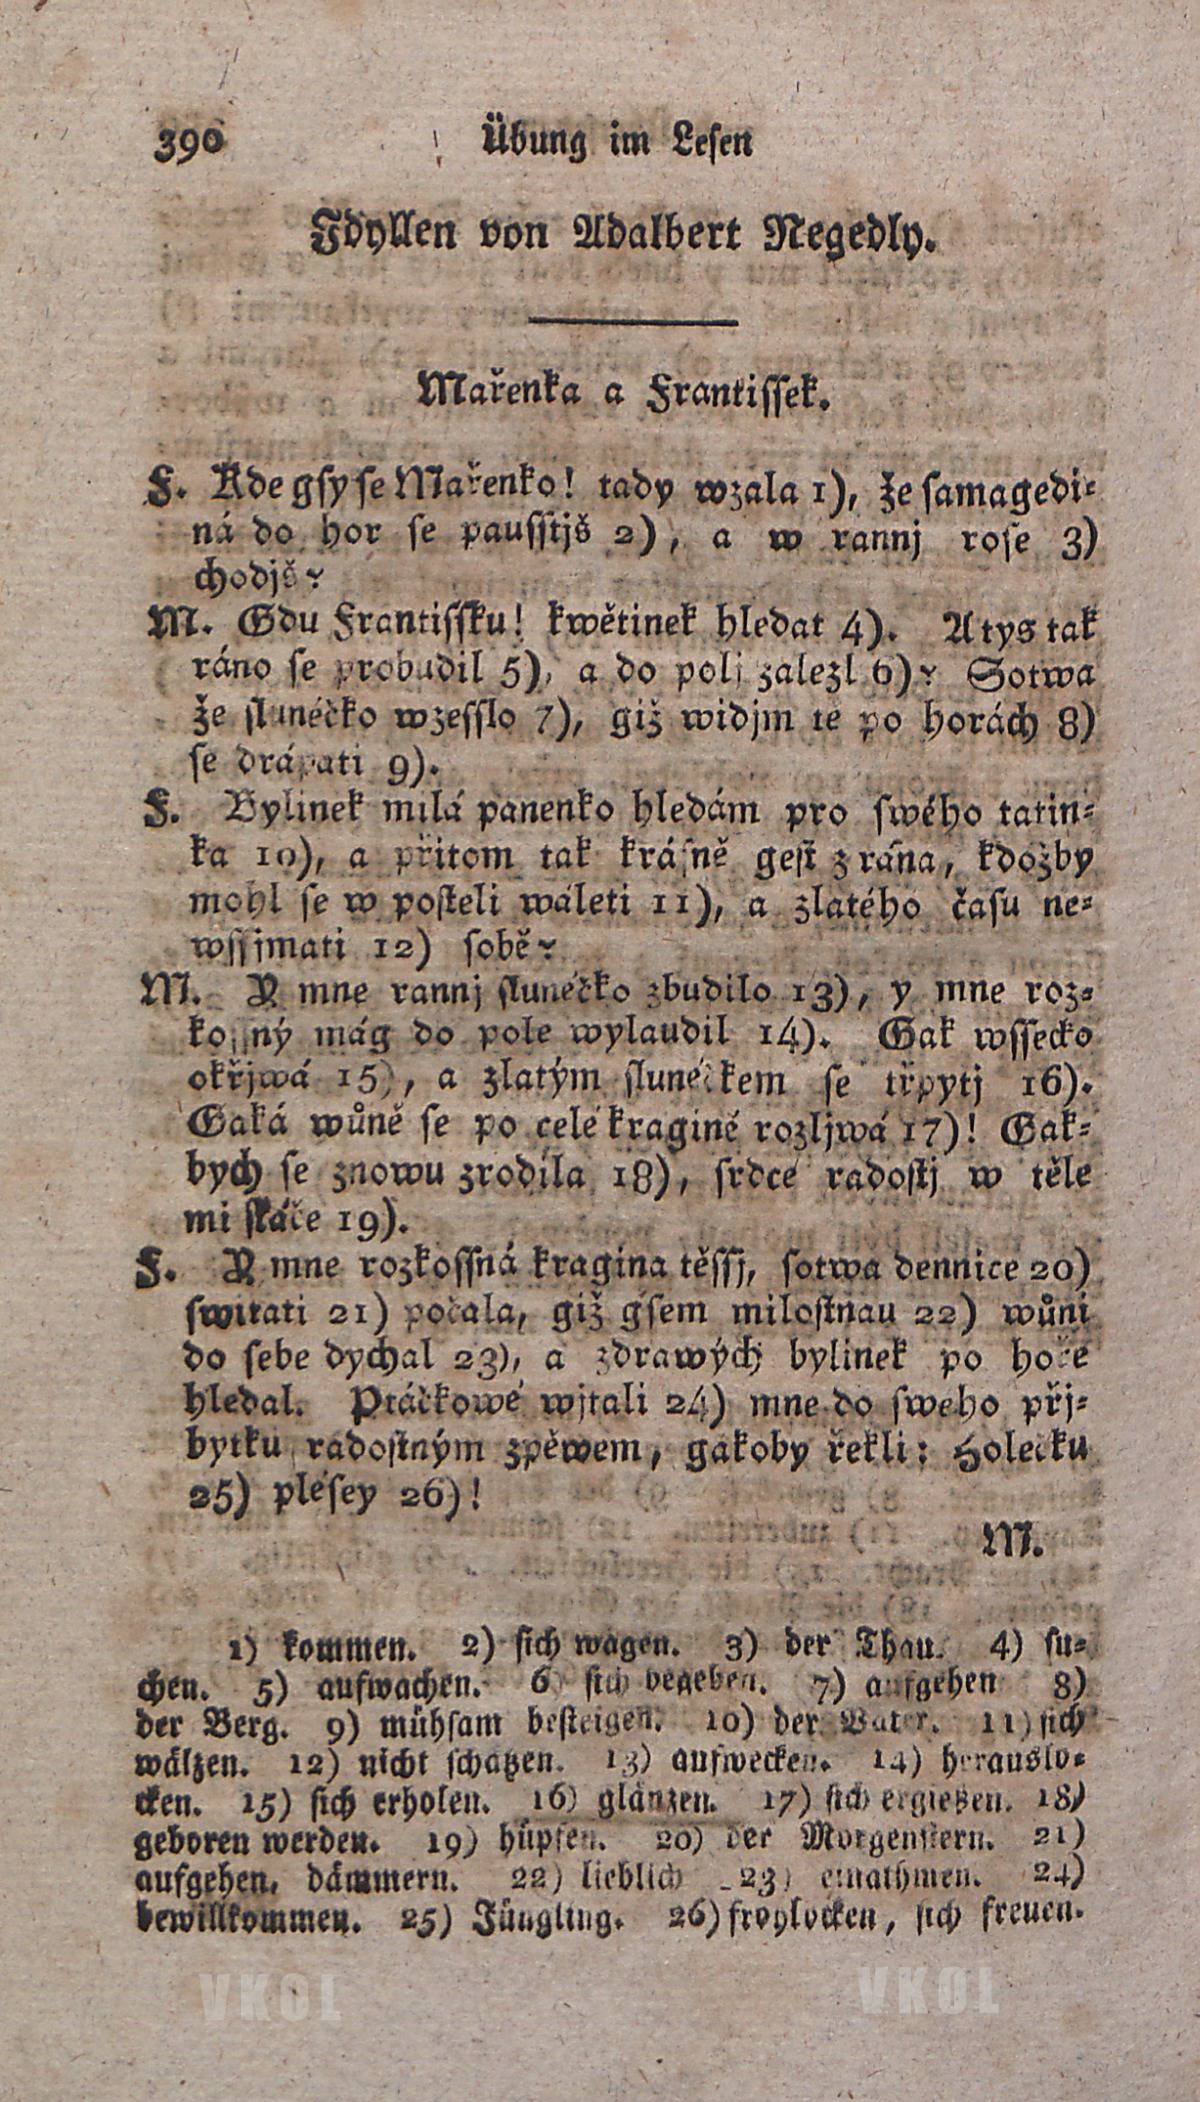 390 Übung im Lesen
Idyllen von Adalbert Negedly.
Mařenka a Frantissek.
F. Kde gsy se Mařenko! tady wzala 1), že sama gedi-
ná do hor se pausstjš 2), a w rannj rose 3)
chodjš?
M. Gdu Frantissku! kwětinek hledat 4). A tys tak
ráno se probudil 5), a do polj zalezl 6)? Sotwa
že slunéčko wzesslo 7), giž widjm tě po horách 8)
se drápati 9).
F. Bylinek milá panenko hledám pro swého tatin-
ka 10), a přitom tak krásně gest z rána, kdožby
mohl se w posteli wáleti 11), a zlatého času ne-
wssjmati 12) sobě?
M. Y mne rannj slunéčko zbudilo 13), y mne roz-
kossný mág do pole wylaudil 14). Gak wssecko
okřjwá 15), a zlatým slunéčkem se třpytj 16).
Gaká wůně se po celé kraginé rozljwá 17)! Gak-
bych se znowu zrodila 18), srdce radostj w těle
mi skáče 19).
F. Y mne rozkossná kragina těssj, sotwa dennice 20)
switati 21) počala, giž gsem milostnau 22) wůni
do sebe dychal 23), a zdrawých bylinek po hoře
hledal. Ptáčkowé wjtali 24) mne do sweho přj-
bytku radostným zpěwem, gakoby řekli: Holečku
25) plésey 26)!
M.
1) kommen. 2) sich wagen. 3) der Thau. 4) su-
chen. 5) aufwachen. 6) sich begeben. 7) aufgehen 8)
der Berg. 9) mühsam besteigen. 10) der Vater. 11) sich
wälzen. 12) nicht schatzen. 13) aufwecken. 14) herauslo-
cken. 15) sich erholen. 16) glänzen. 17) sich ergießen. 18)
geboren werden. 19) hüpfen. 20) der Morgenstern. 21)
aufgehen, dämmern. 22) lieblich 23) einathmen. 24)
bewillkommen. 25) Jüngling. 26) froylocken, sich freuen.
VKOL VKOL